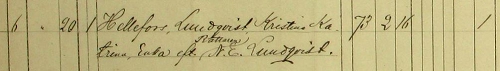 6 " 20 1 Hellefors, Lundqvist Kristina Ka- 73 2 16 1
Rottner
trina, Enka eft. N. E. Lundqvist.